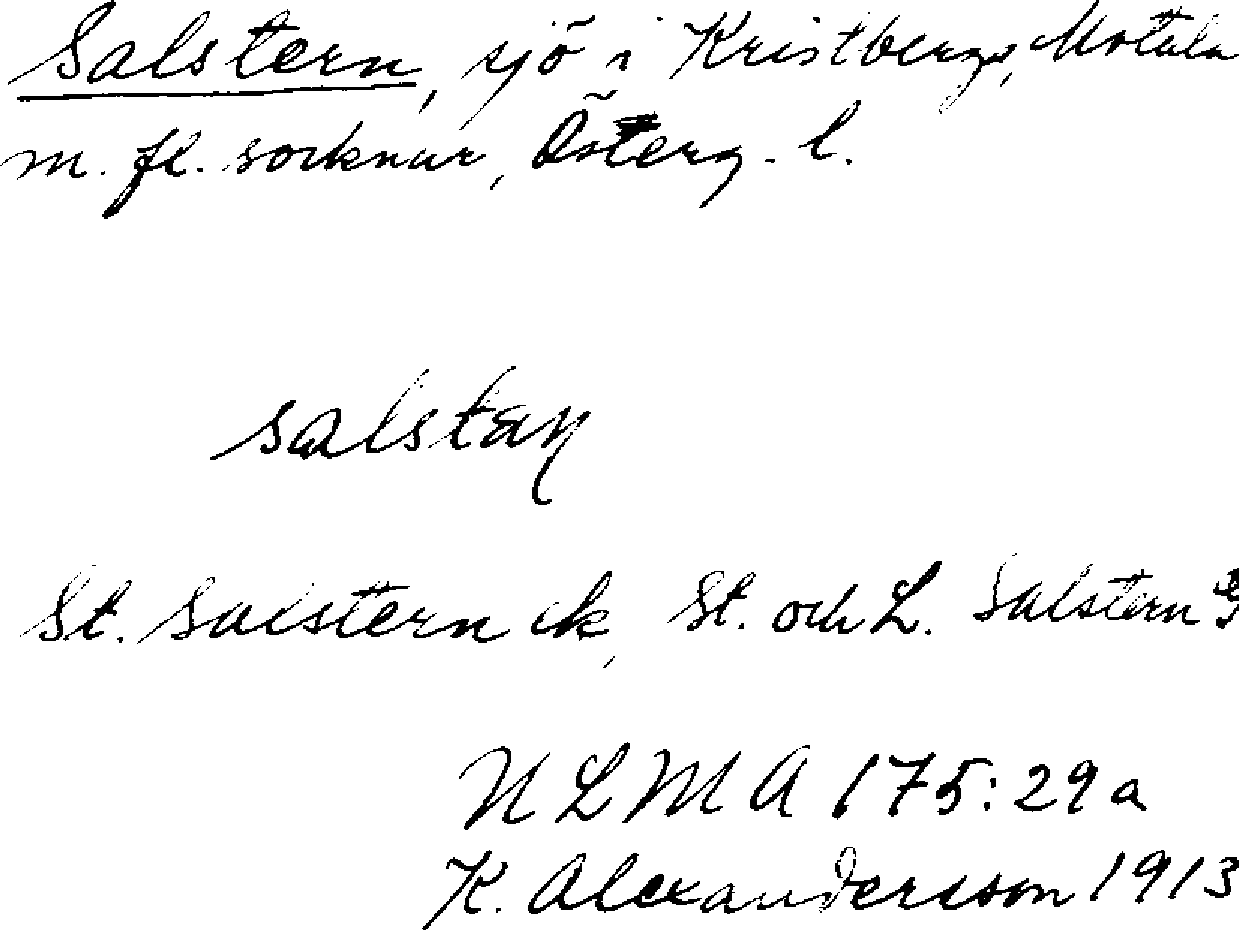 Salstern, sjö i Kristbergs, Motala
m. fl. socknar, Österg. l.
St. Salstern ek, St. och L. Salstern
NLMA 175:29a
K. Alexandersson 1913